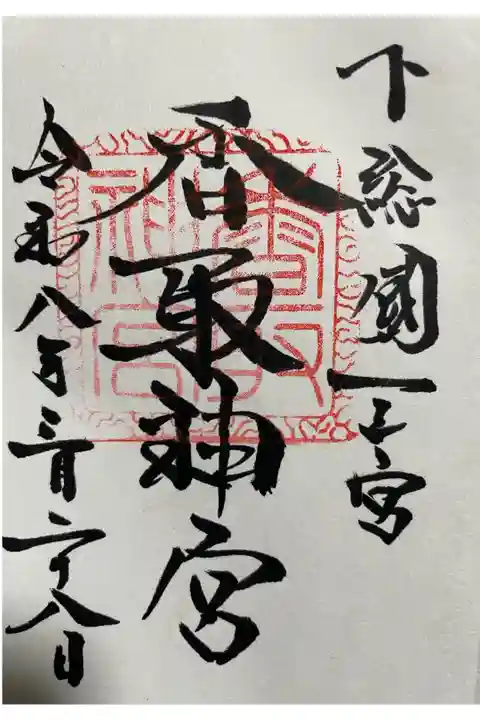 下総國一之宮
香取神宮
令和八年三月二十八日
香取神宮